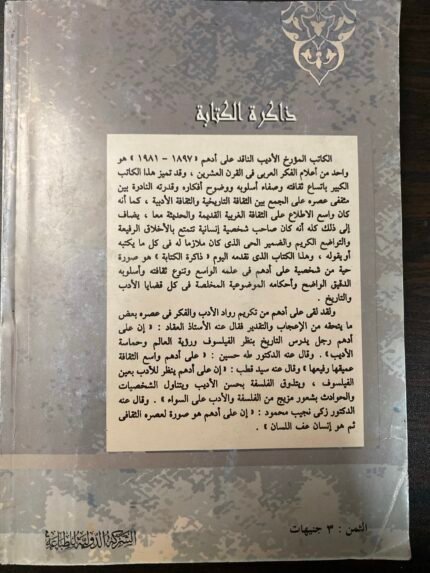 ذاكرة الكتابة
الكاتب المؤرخ الأديب الناقد على أدهم « ١٨٩٧ - ١٩٨١ » هو
واحد من أعلام الفكر العربى فى القرن العشرين ، وقد تميز هذا الكاتب
الكبير باتساع ثقافته وصفاء أسلوبه ووضوح أفكاره وقدرته النادرة بين
مثقفى عصره على الجمع بين الثقافة التاريخية والثقافة الأدبية ، كما أنه
كان واسع الاطلاع على الثقافة الغربية القديمة والحديثة معا ، يضاف
إلى ذلك كله أنه كان صاحب شخصية إنسانية تتمتع بالأخلاق الرفيعة
والتواضع الكريم والضمير الحى الذى كان ملازما له فى كل ما يكتبه
أو يقوله ، وهذا الكتاب الذى نقدمه اليوم « ذاكرة الكتابة » هو صورة
حية من شخصية على أدهم فى علمه الواسع وتنوع ثقافته وأسلوبه
الدقيق الواضح وأحكامه الموضوعية المخلصة فى كل قضايا الأدب
والتاريخ .
ولقد لقى على أدهم من تكريم رواد الأدب والفكر فى عصره بعض
ما يستحقه من الإعجاب والتقدير فقال عنه الأستاذ العقاد : « إن على
أدهم رجل يدرس التاريخ بنظر الفيلسوف ورؤية العالم وحماسة
الأديب» . وقال عنه الدكتور طه حسين : « على أدهم واسع الثقافة
عميقها رفيعها » وقال عنه سيد قطب : « إن على أدهم ينظر للأدب بعين
الفيلسوف ، ويتذوق الفلسفة بحس الأديب ويتناول الشخصيات
والحوادث بشعور مزيج من الفلسفة والأدب على السواء » . وقال عنه
الدكتور زكى نجيب محمود : « إن على أدهم هو صورة لعصره الثقافى
ثم هو إنسان عف اللسان » .
الثمن : ٣ جنيهات
الشركة الدولية للطباعة